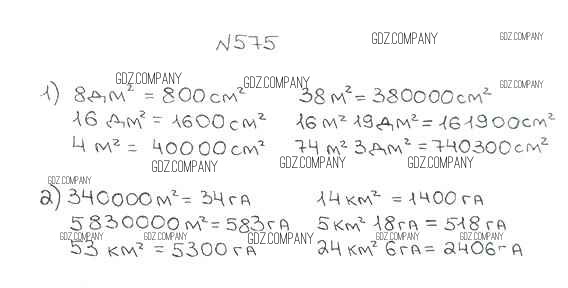 N575
GDZ.COMPANY GDZ.COMPANY
GDZ.COMPANY GDZ.COMPANY GDZ.COMPANY
1) 8дм² = 800 см² 38 м² = 380000 см²
16 дм² = 1600 см² 16 м² 19 дм² = 161900 см²
4 м² = 40000 см² 74 м² 3 дм² = 740300 см²
GDZ.COMPANY GDZ.COMPANY GDZ.COMPANY
GDZ.COMPANY
2) 340000 м² = 34 га 14 км² = 1400 га
5830000 м² = 583 га 5 км² 18 га = 518 га
GDZ.COMPANY GDZ.COMPANY GDZ.COMPANY GDZ.COMPANY GDZ.COMPANY
53 км² = 5300 га 24 км² 6 га = 2406 га